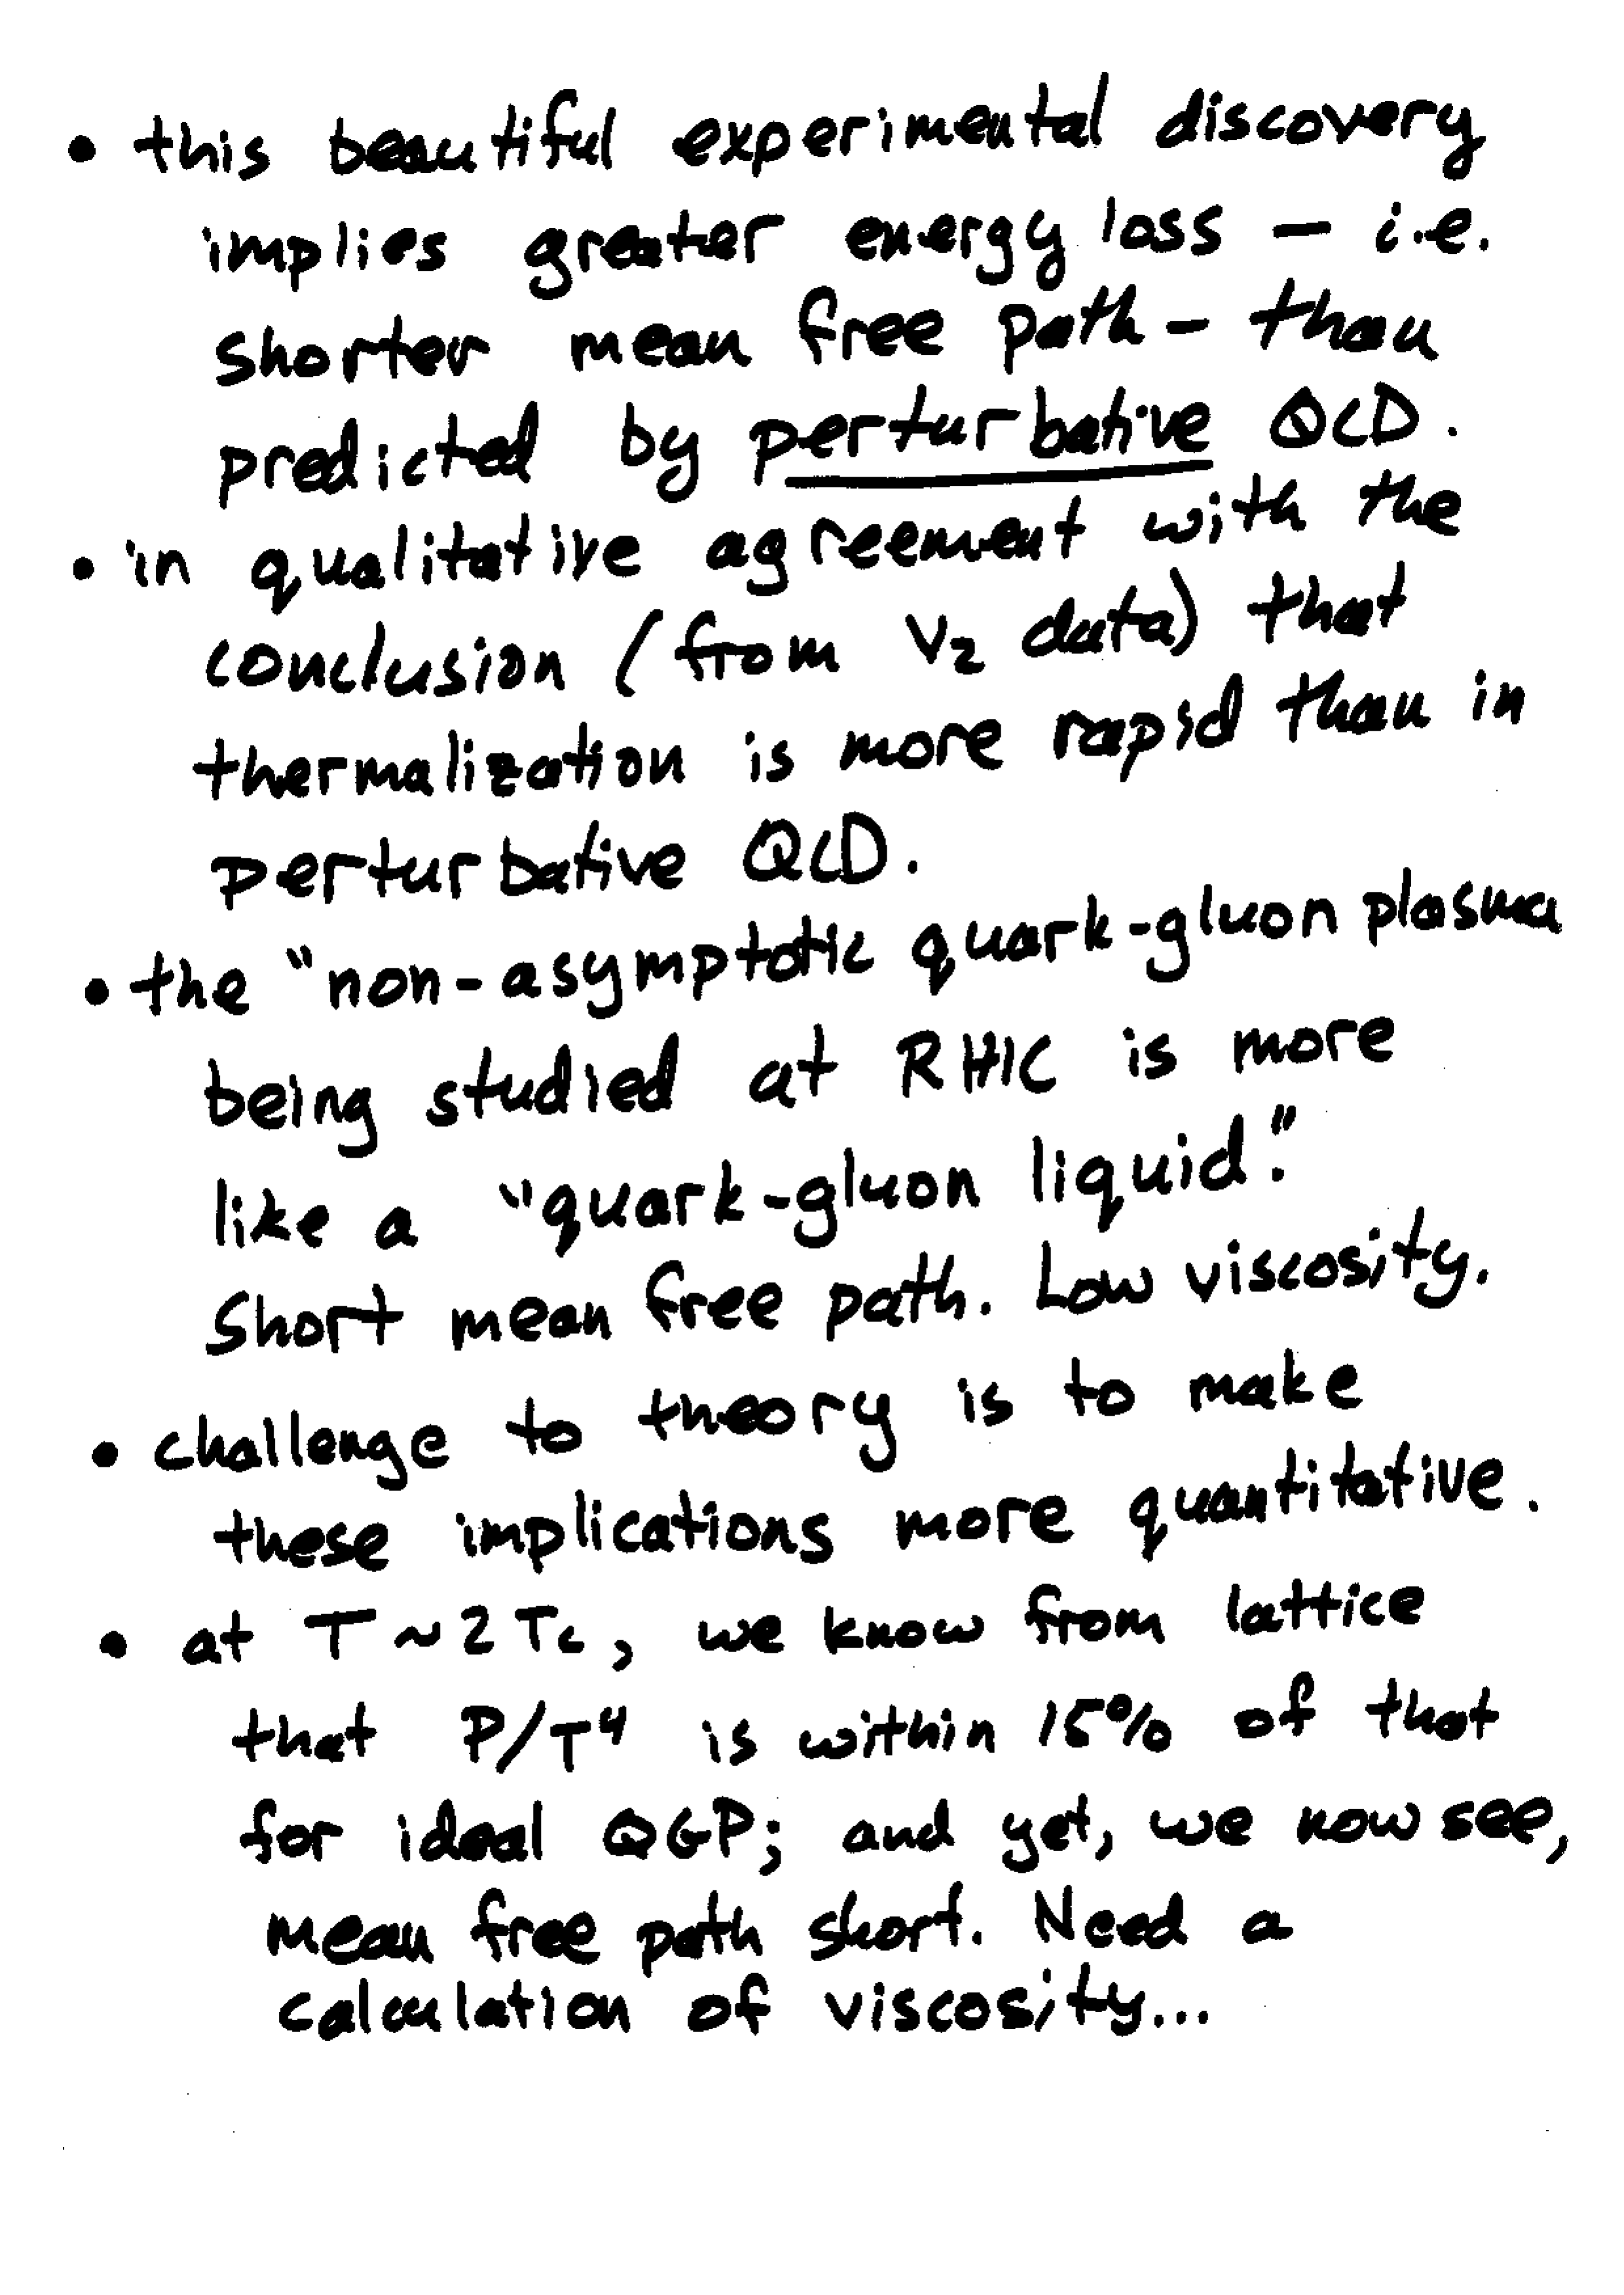 • this beautiful experimental discovery
implies greater energy loss – i.e.
shorter mean free path – than
predicted by perturbative QCD.
• in qualitative agreement with the
conclusion (from v₂ data) that
thermalization is more rapid than in
perturbative QCD.
• the "non-asymptotic quark-gluon plasma
being studied at RHIC is more
like a "quark-gluon liquid."
Short mean free path. Low viscosity.
• challenge to theory is to make
these implications more quantitative.
• at T ~ 2 Tc, we know from lattice
that P/T⁴ is within 15% of that
for ideal QGP; and yet, we now see,
mean free path short. Need a
calculation of viscosity...